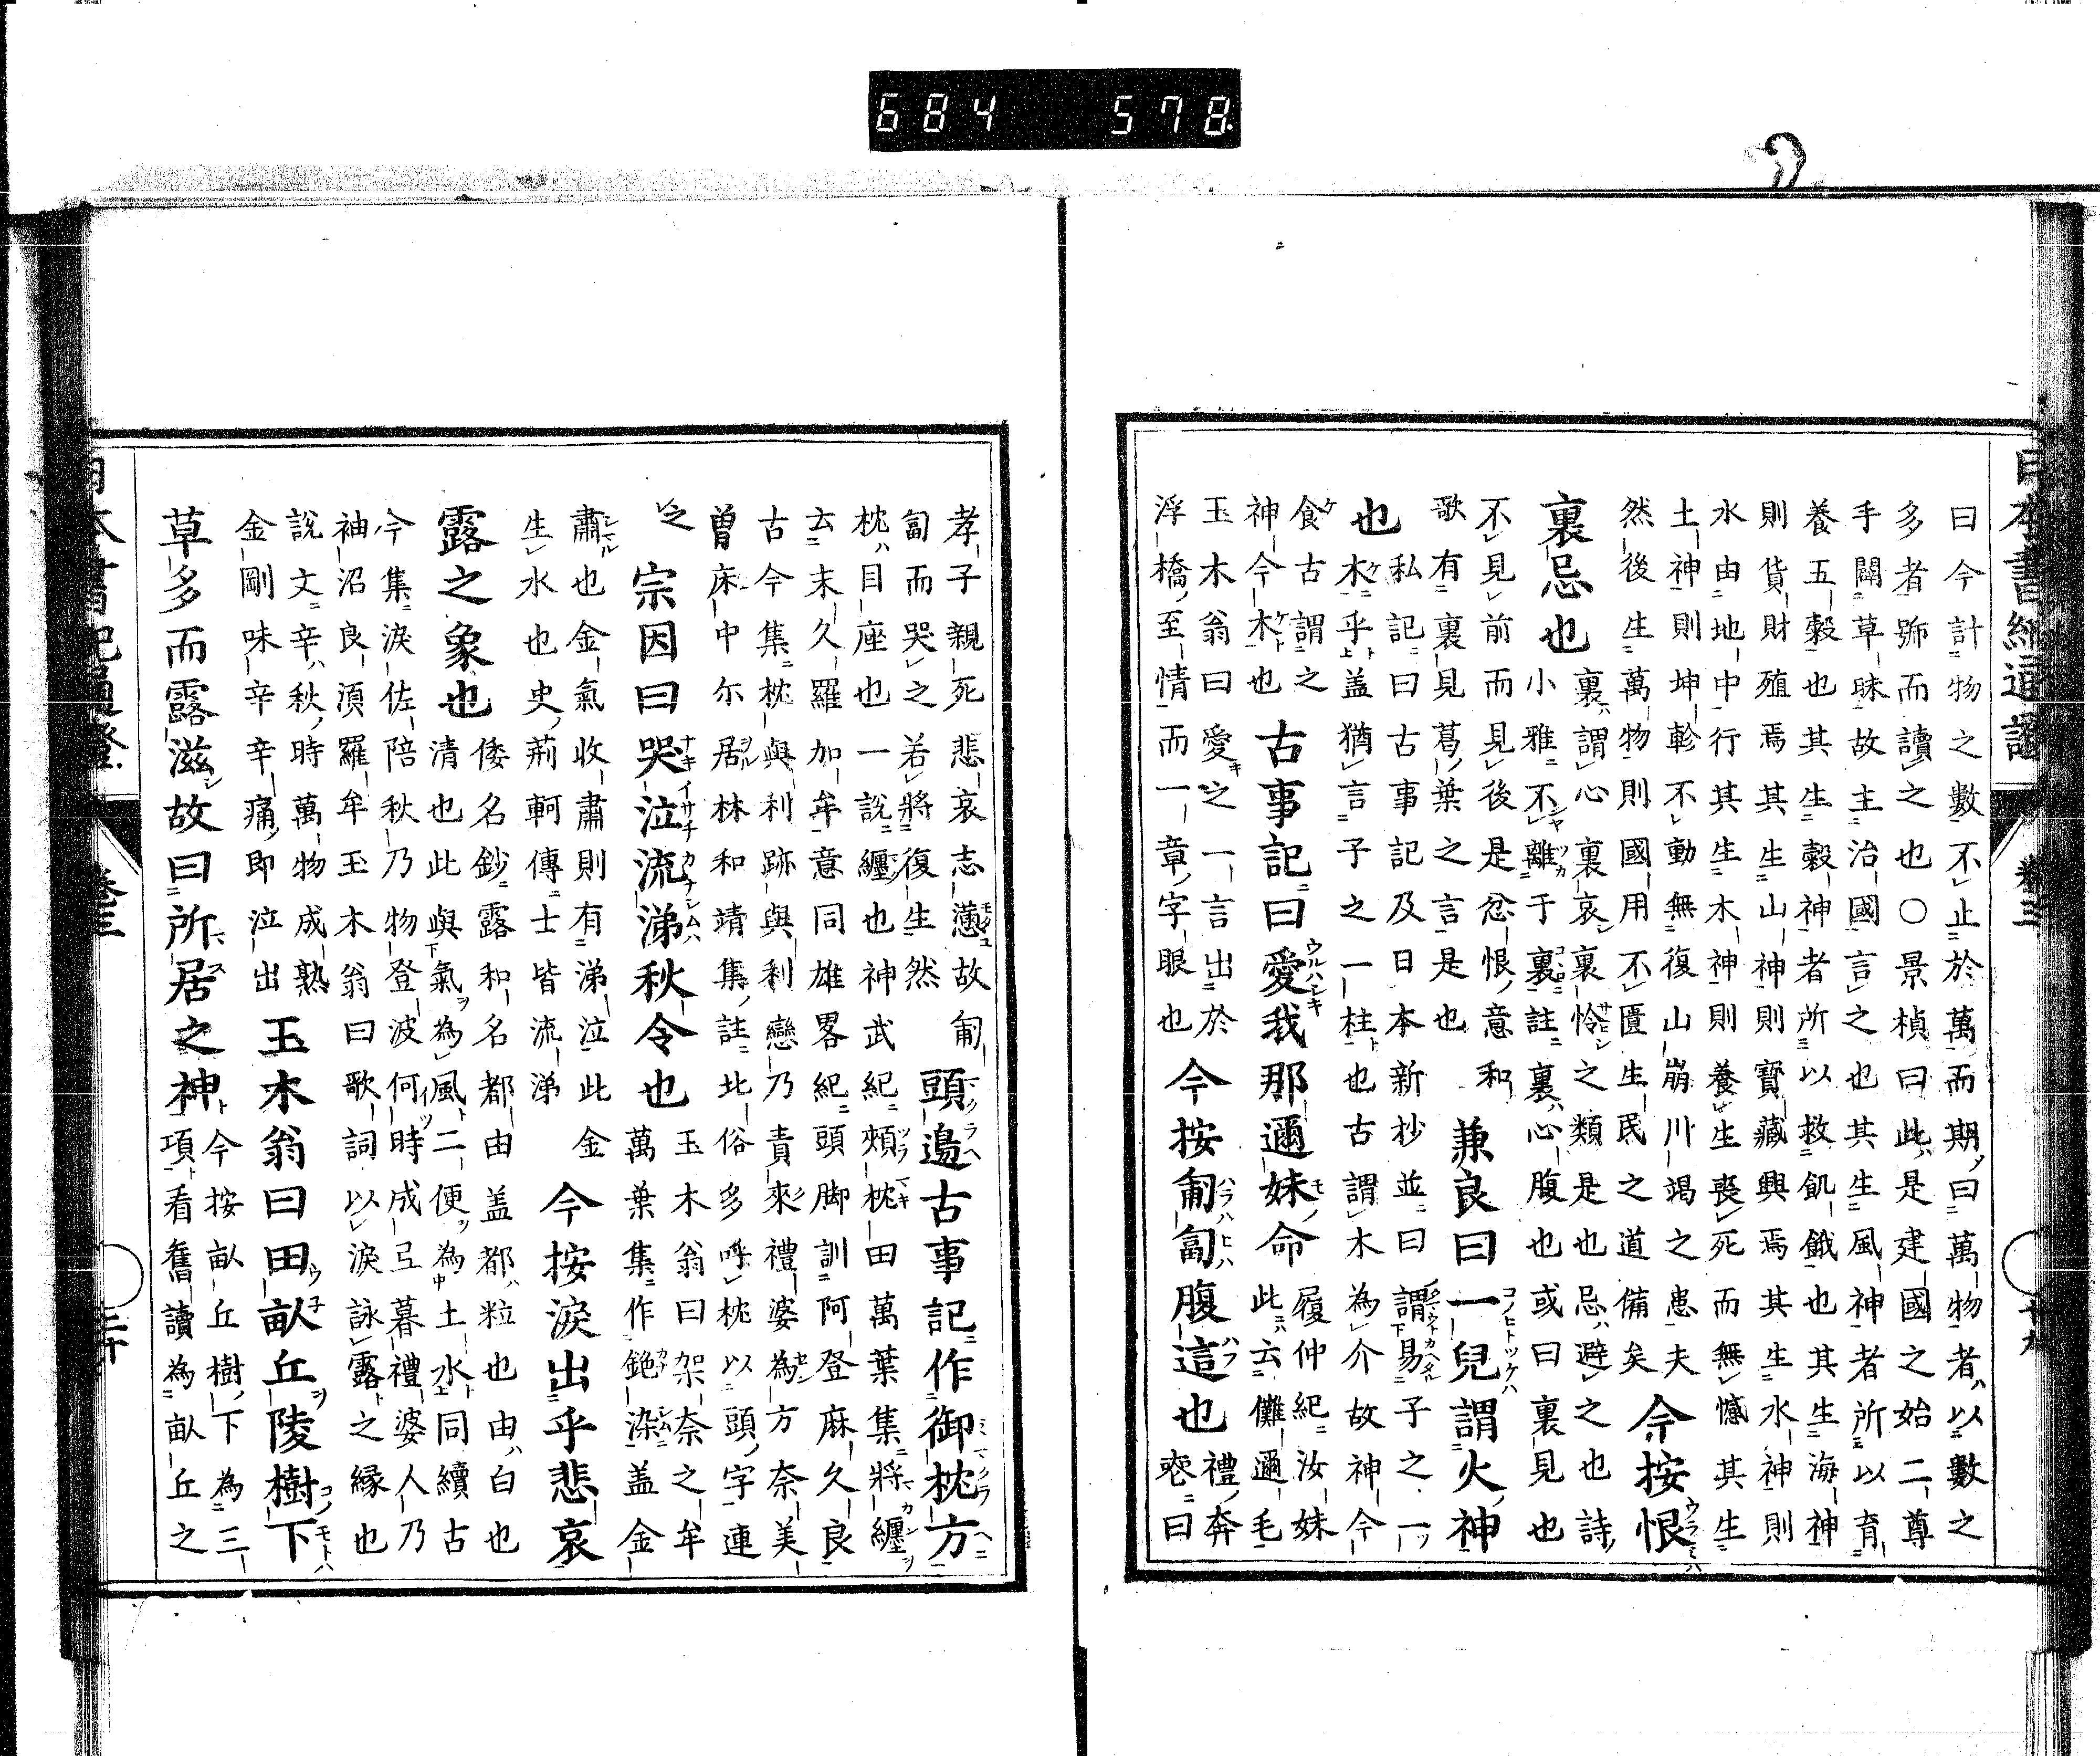 684 578
曰今計物之數不止於萬而期曰萬物者以數之
多者號而讀之也○景楨曰此是建國之始二尊
手闢草昧故主治國言之也其生風神者所以育
養五穀也其生穀神者所以救飢餓也其生海神
則貨財殖焉其生山神則寶藏興焉其生水神則
水由地中行其生木神則養生喪死而無憾其生
土神則坤軫不動無復山崩川竭之患夫
然後生萬物則國用不匱生民之道備矣 今按恨
裏忌也 裏謂心裏哀裏怜之類是也忌避之也詩
小雅不離于裏註裏心腹也或曰裏見也
不見前而見後是忿恨意和
歌有裏見葛葉之言是也 兼良曰一兒謂火神
也 私記曰古事記及日本新抄並曰謂易子之一
木乎盖猶言子之一柱也古謂木為介故神今
食古謂之
神今木也 古事記曰愛我那邇妹命 履仲紀汝妹
此云儺邇毛
玉木翁曰愛之一言出於
浮橋至情而一章字眼也 今按匍匐腹這也 禮奔
喪曰
孝子親死悲哀志懣故匍
匐而哭之若將復生然 頭邊古事記作御枕方
枕目座也一說纏也神武紀頰枕田萬葉集將纏
云末久羅加牟意同雄畧紀頭脚訓阿登麻久良
古今集枕與利跡與利戀乃責來禮婆為方奈美
曽床中尓居林和靖集註北俗多呼枕以頭字連
之 宗因曰哭泣流涕秋令也 玉木翁曰架奈之牟
萬葉集作䤼染盖金
肅也金氣收肅則有涕泣此金
生水也史荊軻傳士皆流涕 今按淚出乎悲哀
露之象也 倭名鈔露和名都由盖都粒也由白也
清也此與氣為風二便為土水同續古
今集淚佐陪秋乃物登波何時成弖暮禮婆人乃
袖沼良湏羅牟玉木翁曰歌詞以淚詠露之縁也
說文辛秋時萬物成熟
金剛味辛辛痛即泣出 玉木翁曰田畝丘陵樹下
草多而露滋故曰所居之神 今按畝丘樹下為三
項看舊讀為畝丘之